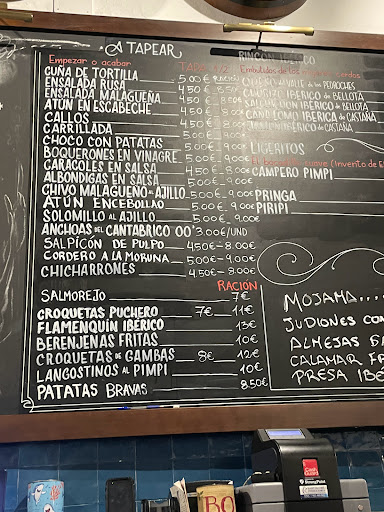 A TAPEAR
Empezar o acabar
TAPA 1/2
CUÑA DE TORTILLA 5.00€ RACIÓN
ENSALADA RUSA 4.50€ - 8.50€
ENSALADA MALAGUEÑA 4.50€ - 8.00€
ATÚN EN ESCABECHE
CALLOS 4.50€ - 8.00€
CARRILLADA 5.00€ - 9.00€
CHOCO CON PATATAS 5.00€ - 9.00€
BOQUERONES EN VINAGRE 5.00€ - 9.00€
CARACOLES EN SALSA 5.00€ - 9.00€
ALBÓNDIGAS EN SALSA 5.00€ - 9.00€
CHIVO MALAGUEÑO AL AJILLO 5.00€ - 9.00€
ATÚN ENCEBOLLAO 5.00€ - 9.00€
SOLOMILLO AL AJILLO 5.00€ - 9.00€
ANCHOAS DEL CANTABRICO 00" 3.00€/UND
SALPICÓN DE PULPO 4,50€ - 8.00€
CORDERO A LA MORUNA 5.00€ - 9.00€
CHICHARRONES 4,50€ - 8.00€
RACIÓN
SALMOREJO 7€
CROQUETAS PUCHERO 7€ 11€
FLAMENQUÍN IBÉRICO 13€
BERENJENAS FRITAS 10€
CROQUETAS DE GAMBAS 8€ 12€
LANGOSTINOS AL PIMPI 10€
PATATAS BRAVAS 8.50€
RINCÓN IBÉRICO
Embutidos de los
CHORIZO IBÉRICO DE BELLOTA
SALCHICHÓN IBÉRICO DE BELLOTA
CANA LOMO IBÉRICA DE CASTAÑA
JAMÓN IBÉRICO DE CASTAÑA
LIGERITOS
CAMPERO PIMPI
PRINGA
PIRIPI
MOJAMA...
JUDIONES CON
ALMEJAS
CALAMAR FR
PRESA IBÉ
BO